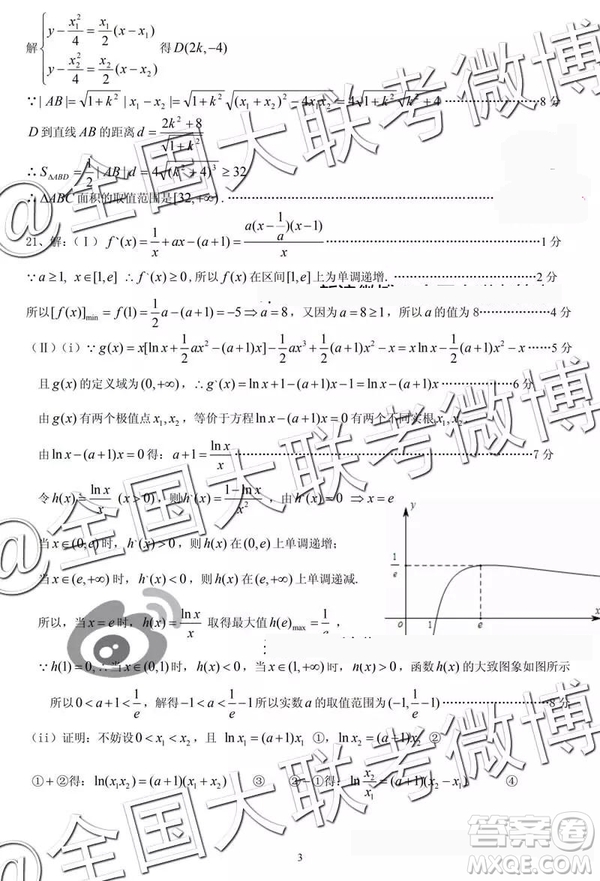 解{y-x₁²/4=x₁/2(x-x₁)
y-x₂²/4=x₂/2(x-x₂) 得D(2k,-4)
∵|AB|=√(1+k²)|x₁-x₂|=√(1+k²)√((x₁+x₂)²-4x₁x₂)=4√(1+k²)√(k²+4) ……8分
D到直线AB的距离d=(2k²+8)/√(1+k²)
∴S△ABD=1/2|AB|d=4√((k²+4)³)≥32
∴△ABC面积的取值范围是[32,+∞).
21、解:(Ⅰ)f`(x)=1/x+ax-(a+1)=a(x-1/a)(x-1)/x ……1分
∵a≥1, x∈[1,e] ∴f`(x)≥0,所以f(x)在区间[1,e]上为单调递增. ……2分
所以[f(x)]min=f(1)=1/2a-(a+1)=-5⇒a=8, 又因为a=8≥1,所以a的值为8……4分
(Ⅱ)(i)∵g(x)=x[ln x+1/2ax²-(a+1)x]-1/2ax³+1/2(a+1)x²-x=xln x-1/2(a+1)x²-x ……5分
且g(x)的定义域为(0,+∞),∴g`(x)=ln x+1-(a+1)x-1=ln x-(a+1)x ……6分
由g(x)有两个极值点x₁,x₂,等价于方程ln x-(a+1)x=0有两个不同实根x₁,x₂.
由ln x-(a+1)x=0得: a+1=ln x/x ……7分
令h(x)=ln x/x (x>0),则h`(x)=(1-ln x)/x²,由h`(x)=0 ⇒x=e
当x∈(0,e)时,h`(x)>0,则h(x)在(0,e)上单调递增;
当x∈(e,+∞)时,h`(x)<0,则h(x)在(e,+∞)上单调递减.
y
1/e
o
1
e
x
所以,当x=e时,h(x)=ln x/x 取得最大值h(e)max=1/e,
∵h(1)=0,∴当x∈(0,1)时,h(x)<0,当x∈(1,+∞)时,h(x)>0,函数h(x)的大致图象如图所示
所以0<a+1<1/e,解得-1<a<1/e-1所以实数a的取值范围为(-1,1/e-1) ……8分
(ii)证明:不妨设0<x₁<x₂,且 ln x₁=(a+1)x₁ ①, ln x₂=(a+1)x₂ ②,
①+②得:ln(x₁x₂)=(a+1)(x₁+x₂) ③ ②-①得:ln x₂/x₁=(a+1)(x₂-x₁) ④
3
@全国大联考微博
@全国大联考微博
@全国大联考微博
答案卷
www.mxqe.com